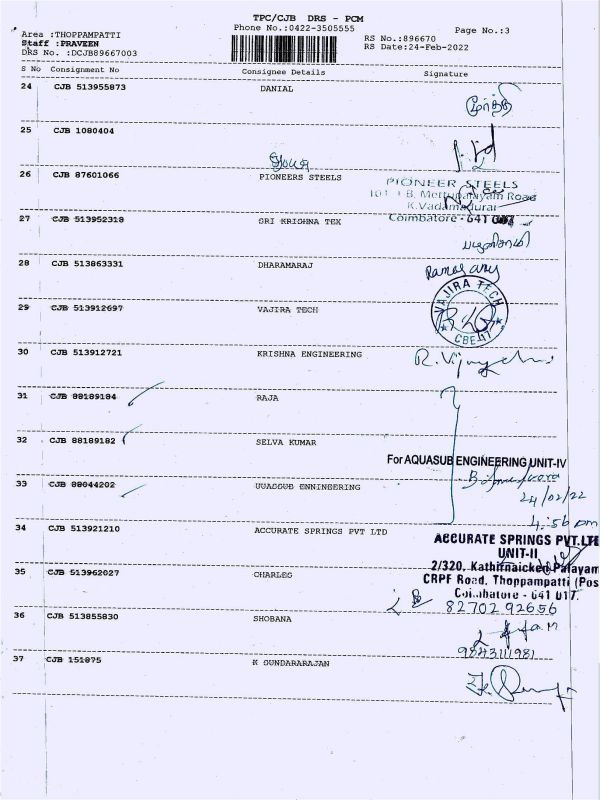 TPC/CJB DRS - PCM
Phone No.:0422-3505555
Page No.:3
Area :THOPPAMPATTI
Staff :PRAVEEN
DRS No. :DCJB89667003
RS No.:896670
RS Date:24-Feb-2022
S No Consignment No Consignee Details Signature
24 CJB 513955873 DANIAL
மூர்த்தி
25 CJB 1080404
26 CJB 87601066 PIONEERS STEELS
PIONEER STEELS
Mettupalayam Road
K.Vadamadurai
Coimbatore - 641
27 CJB 513952318 SRI KRISHNA TEX
28 CJB 513863331 DHARAMARAJ
29 CJB 513912697 VAJIRA TECH
VAJIRA TECH
CBE-17
30 CJB 513912721 KRISHNA ENGINEERING
31 CJB 88189184 RAJA
32 CJB 88189182 SELVA KUMAR
For AQUASUB ENGINEERING UNIT-IV
33 CJB 88044202 UUASUB ENNINEERING
24/02/22
4:56 pm
34 CJB 513921210 ACCURATE SPRINGS PVT LTD
ACCURATE SPRINGS PVT.LTD
UNIT-II
2/320, Kathirnaicken Palayam
CRPF Road, Thoppampatti (Pos
Coimbatore - 641 017.
35 CJB 513962027 CHARLES
8270292656
36 CJB 513855830 SHOBANA
9843111981
37 CJB 151875 K SUNDARARAJAN